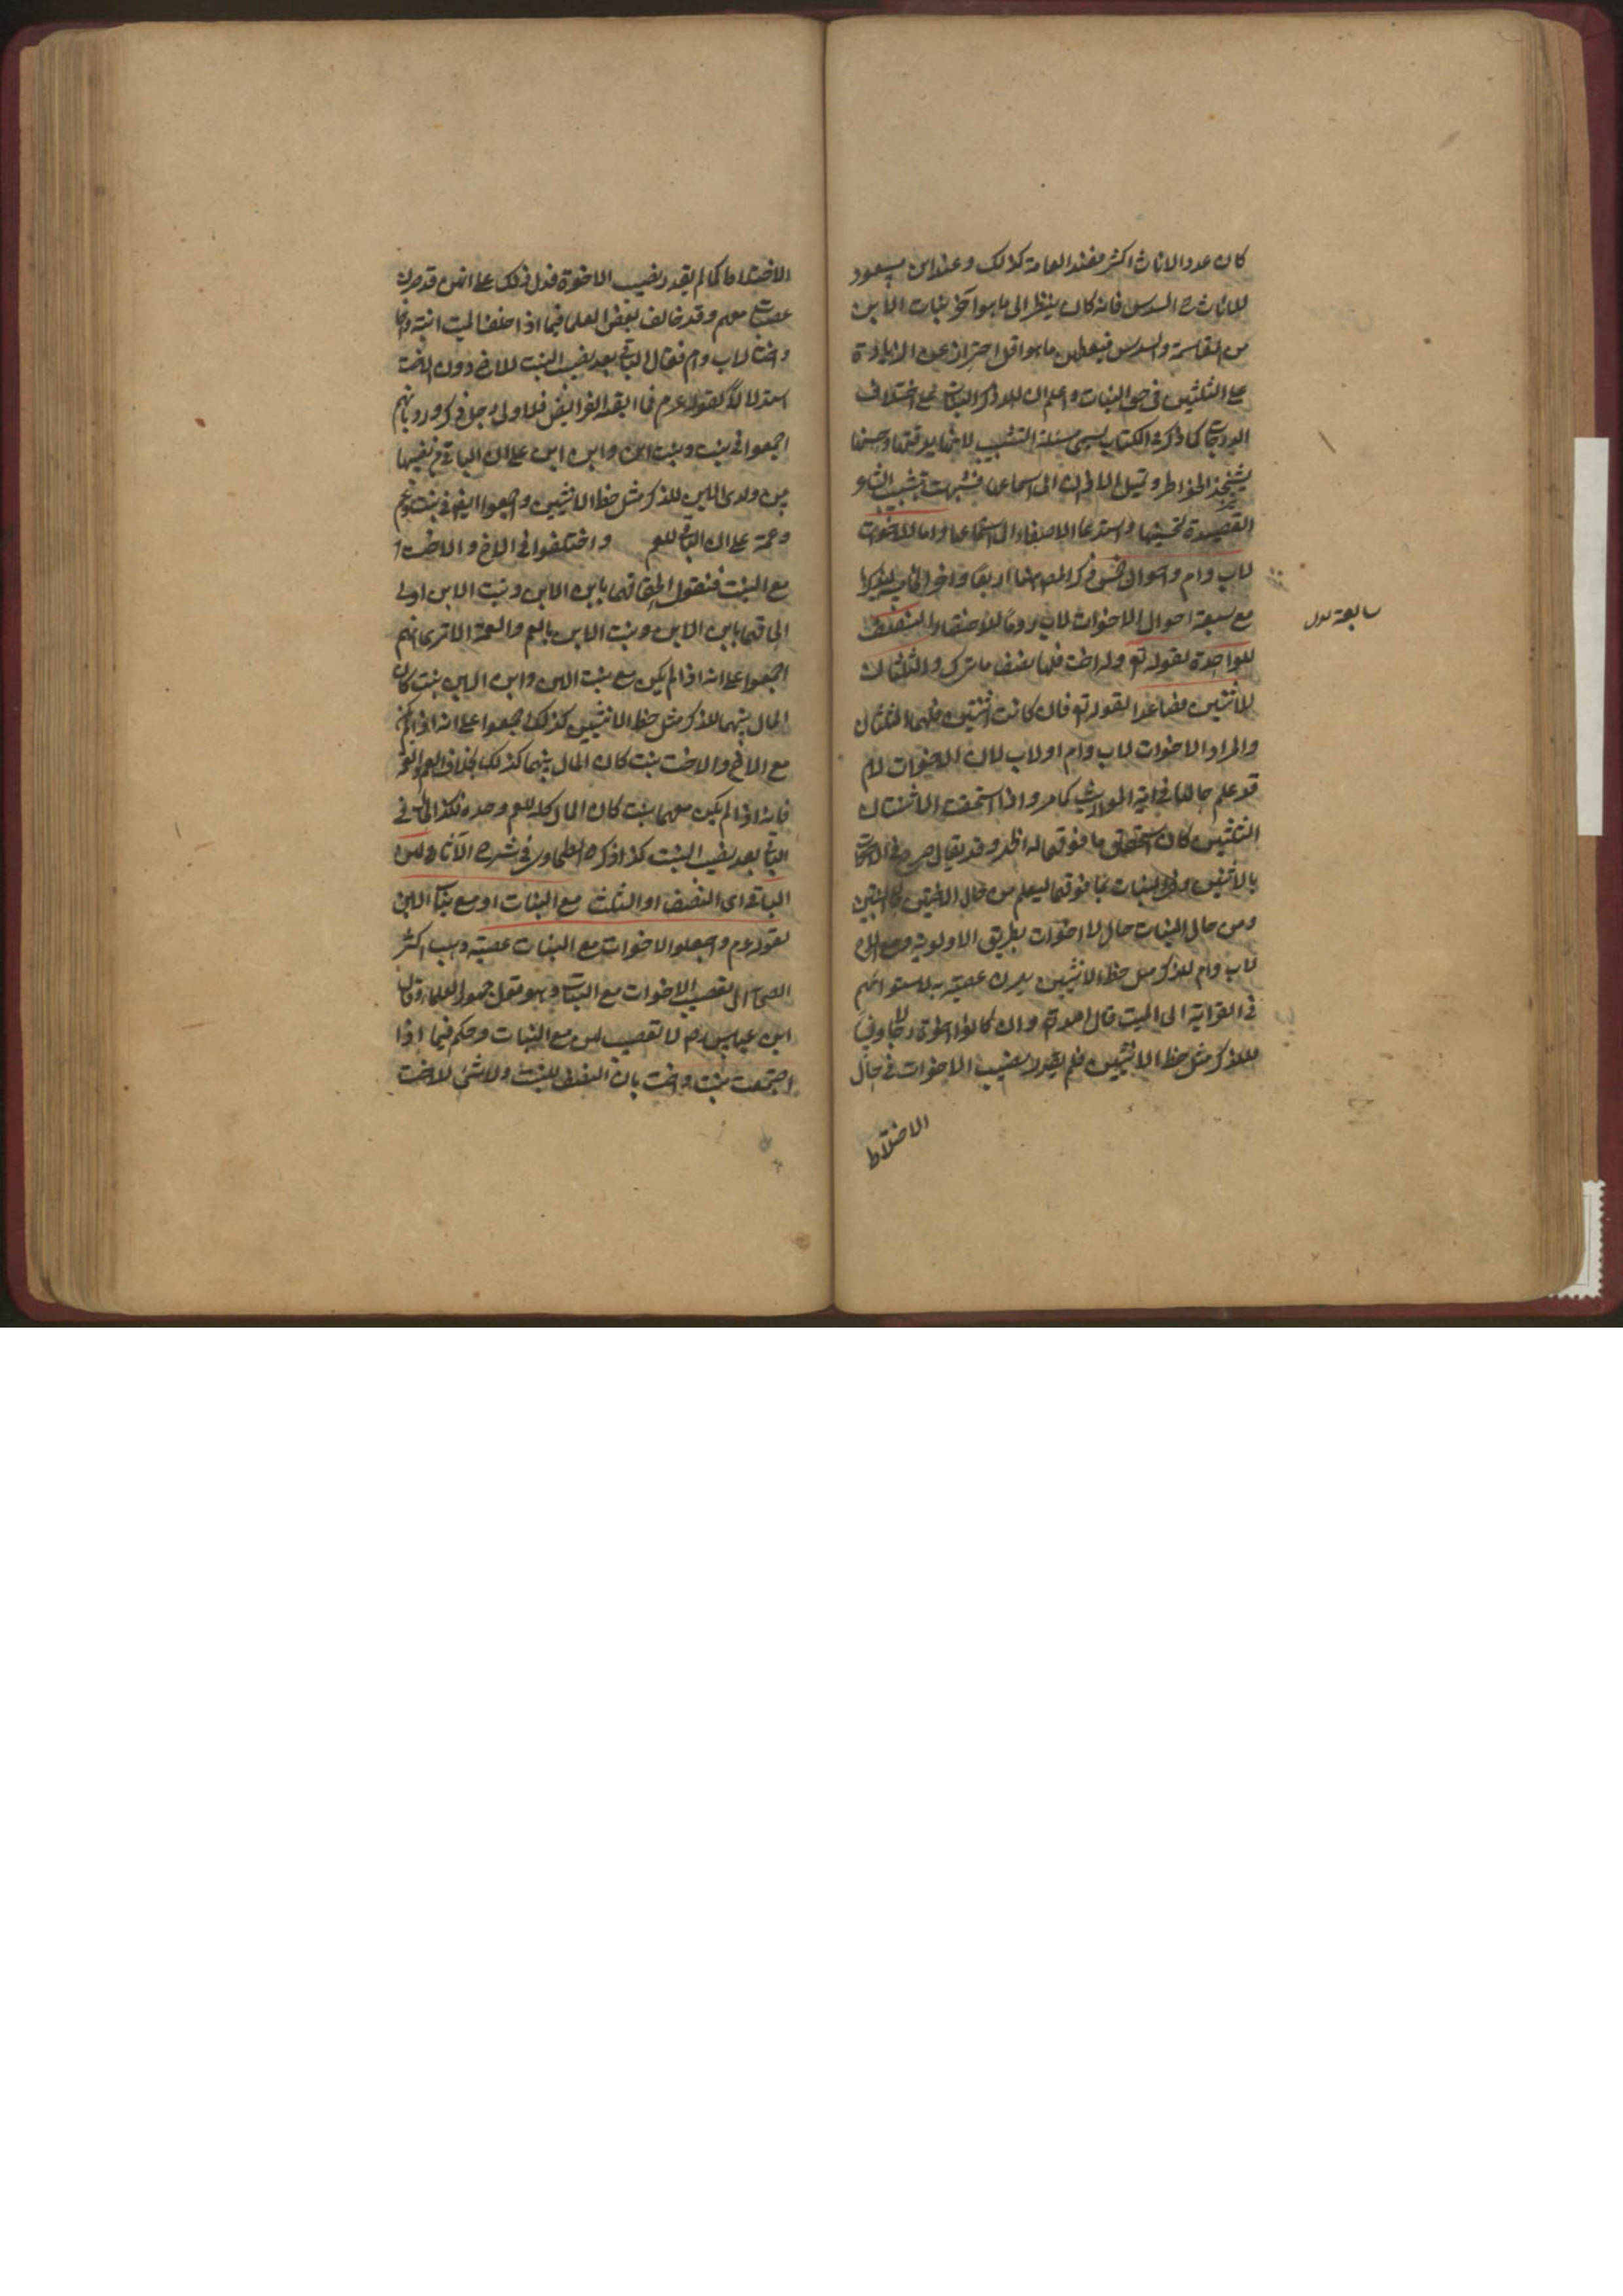 كان عدد الاناث اكثر فعند العامة كذلك وعند ابن مسعود
للاناث السدس فانه كان ينظر الى ما هو آخر بنات الابن
من المقاسمة والسدس فيعطهن ما هو اقل احترازا عن الزيادة
على الثلثين فى حق البنات واعلم ان ذكر البنات على اختلاف
الدرجات كما ذكره الكتاب يسمى مسئلة التشبيب لانها بدقتها وحسنها
يشحذ الخواطر وتميل الاذان الى استماعها فشبهت بتشبيب الشاعر
القصيدة لتحسينها واستدعا الاصغاء الى استماعها واما للاخوات
لاب وام واحوال خمس ذكر المص منها اربعا واخر الخامسة ليذكرها
مع سبعة احوال الاخوات لاب روما للاختصار النصف
للواحدة لقوله تع وله اخت فلها نصف ما ترك والثلثان
للاثنتين فصاعدا لقوله تع فان كانت اثنتين فلهما الثلثان
والمراد الاخوات لاب وام او لاب لان الاخوات لام
قد علم حالها فى اية المواريث كما مر واذا استحقت الاثنتان
الثلثين كان استحقاق ما فوقهما له اظهر وقد يقال صرح فى الاخوات
بالاثنتين وفى البنات بما فوقهما ليعلم من حال الاختين حال البنتين
ومن حال البنات حال الاخوات بطريق الاولوية ومع الاخ
لاب وام للذكر مثل حظ الانثيين يصرن عصبة به لاستوائهم
فى القرابة الى الميت قال الله وان كانوا اخوة رجالا ونساء
فللذكر مثل حظ الانثيين فلم يقدر نصيب الاخوات فى حال
الاختلاط
سابعة
الاختلاط كما لم يقدر نصيب الاخوة فدل ذلك على انهن قد صرن
عصبات معهم وقد خالف بعض العلما فيما اذا خلف الميت ابنة واخا
واختا لاب وام فقال الباقى بعد نصيب البنت للاخ دون الاخت
استدلالا لقوله عم فما ابقته الفرايض فلاولى رجل ذكر ورد بانهم
اجمعوا فى بنت وبنت ابن وابن ابن على ان الباقى من نصيبها
بين ولدى الابن للذكر مثل حظ الانثيين واجمعوا ايضا فى بنت وعم
وعمة على ان الباقى للعم واختلفوا فى الاخ والاخت
مع البنت فنقول الحاقهما بابن الابن وبنت الابن اولى
الحاقهما بابن الابن وبنت الابن بالعم والعمة الا ترى انهم
اجمعوا على انه اذا لم يكن مع بنت الابن وابن الابن بنت كان
المال بينهما للذكر مثل حظ الانثيين كذلك اجمعوا على انه اذا لم يكن
مع الاخ والاخت بنت كان المال بينهما كذلك بخلاف العم والعمة
فانه اذا لم يكن معهما بنت كان المال كله للعم وحده فكذا الحال فى
الباقى بعد نصيب البنت كذا ذكره الطحاوى فى شرح الآثار ولهن
الباقى اى النصف او الثلث مع البنات او مع بنات الابن
لقوله عم واجعلوا الاخوات مع البنات عصبة ذهب اكثر
الصحابة الى تعصيب الاخوات مع البنات وهو قول جمهور العلماء وقال
ابن عباس رض لا تعصيب لهن مع البنات وحكم فيما اذا
اجتمعت بنت واخت بان النصف للبنت ولا شئ للاخت